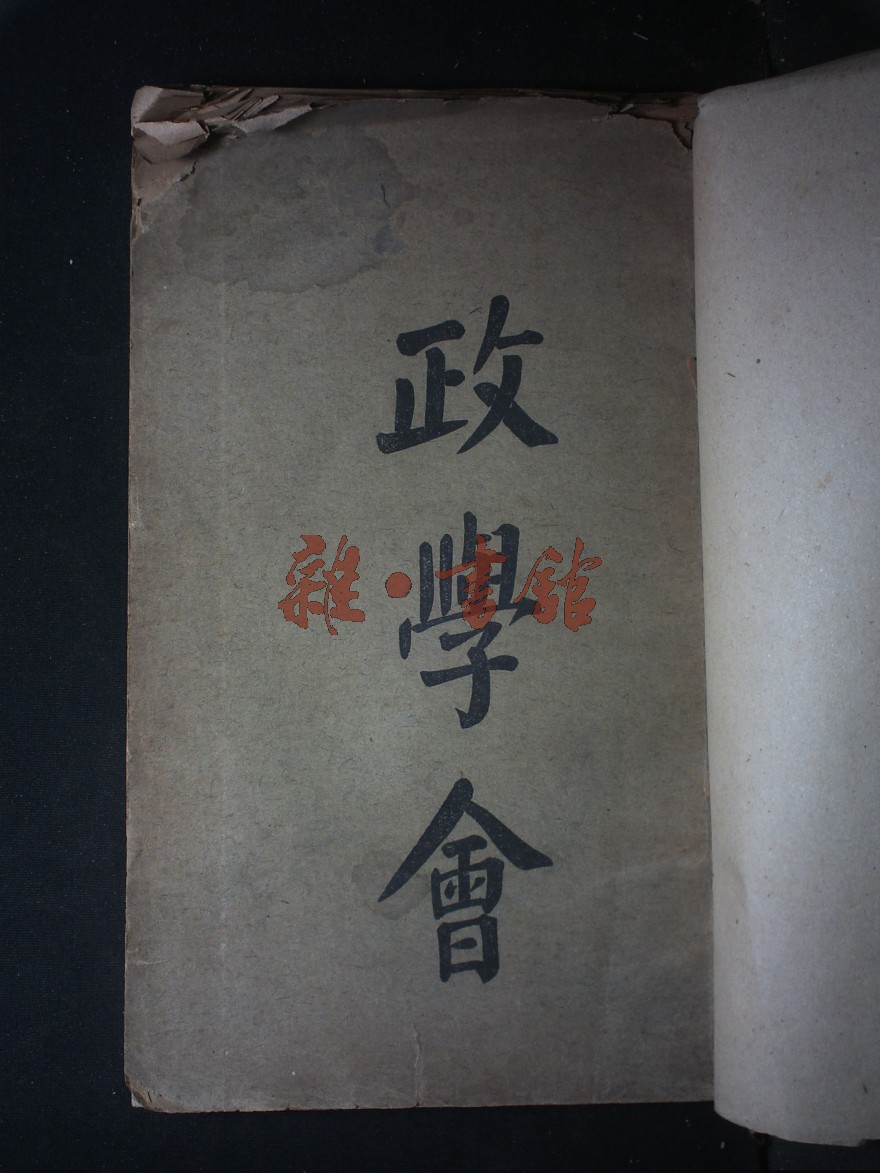 政學會
雜·書館